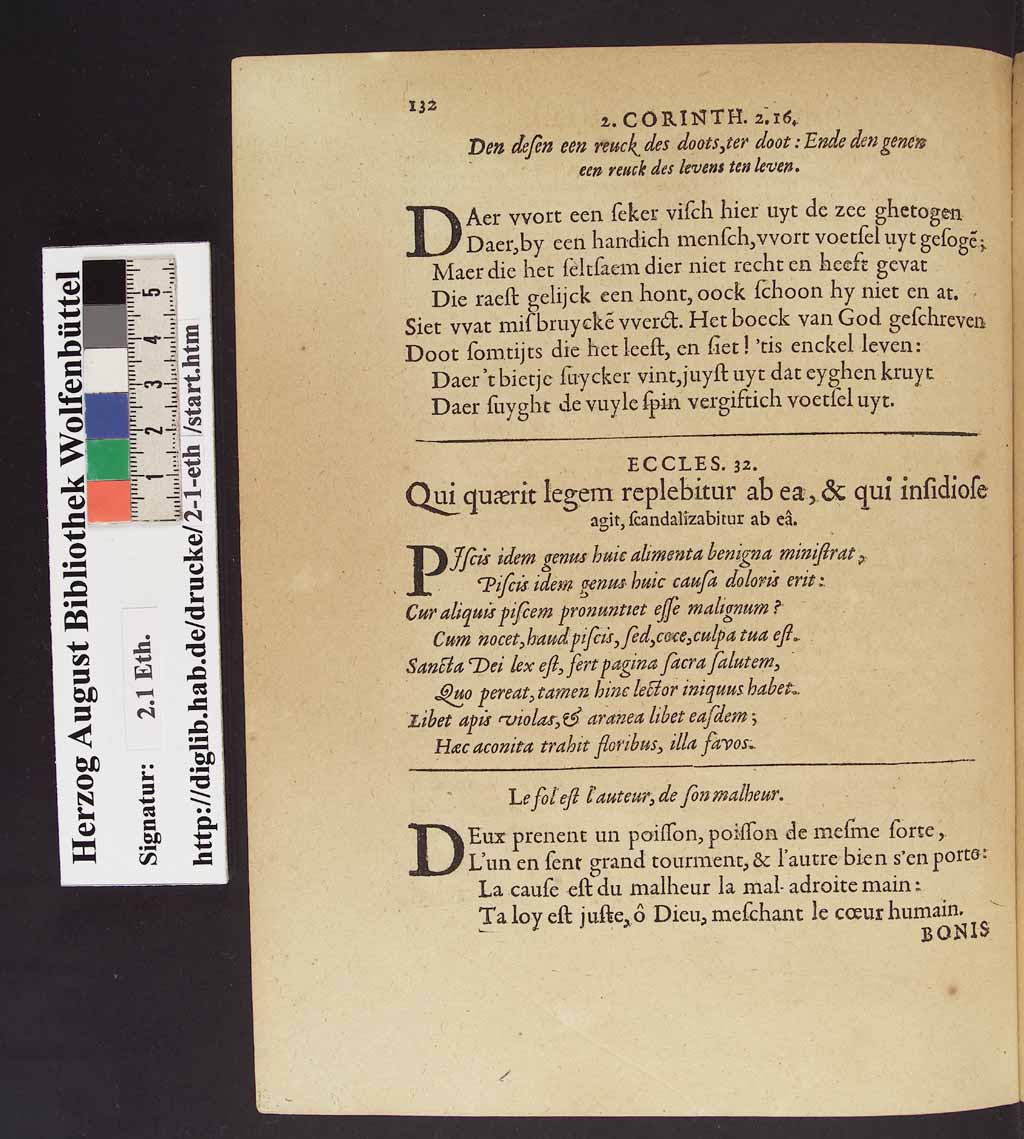 132
2. CORINTH. 2.16.
Den deſen een reuck des doots, ter doot : Ende den genen
een reuck des levens ten leven.
DAer vvort een ſeker viſch hier uyt de zee ghetogen
Daer, by een handich menſch, vvort voetſel uyt geſogẽ;
Maer die het ſeltſaem dier niet recht en heeft gevat
Die raeſt gelijck een hont, oock ſchoon hy niet en at.
Siet vvat miſbruyckẽ vverct. Het boeck van God geſchreven
Doot ſomtijts die het leeſt, en ſiet! 'tis enckel leven:
Daer 't bietje ſuycker vint, juyſt uyt dat eyghen kruyt
Daer ſuyght de vuyle ſpin vergiftich voetſel uyt.
ECCLES. 32.
Qui quærit legem replebitur ab ea, & qui inſidioſe
agit, ſcandalizabitur ab eâ.
PIſcis idem genus huic alimenta benigna miniſtrat,
Piſcis idem genus huic cauſa doloris erit:
Cur aliquis piſcem pronuntiet eſſe malignum?
Cum nocet, haud piſcis, ſed, coce, culpa tua eſt.
Sancta Dei lex eſt, fert pagina ſacra ſalutem,
Quo pereat, tamen hinc lector iniquus habet.
Libet apis violas, & aranea libet eaſdem;
Hæc aconita trahit floribus, illa favos.
Le fol eſt l'auteur, de ſon malheur.
DEux prenent un poiſſon, poiſſon de meſme ſorte,
L'un en ſent grand tourment, & l'autre bien s'en porte:
La cauſe eſt du malheur la mal-adroite main:
Ta loy eſt juſte, ô Dieu, meſchant le cœur humain.
BONIS
Herzog August Bibliothek Wolfenbüttel
1 2 3 4 5
Signatur: 2.1 Eth.
http://diglib.hab.de/drucke/2-1-eth/start.htm